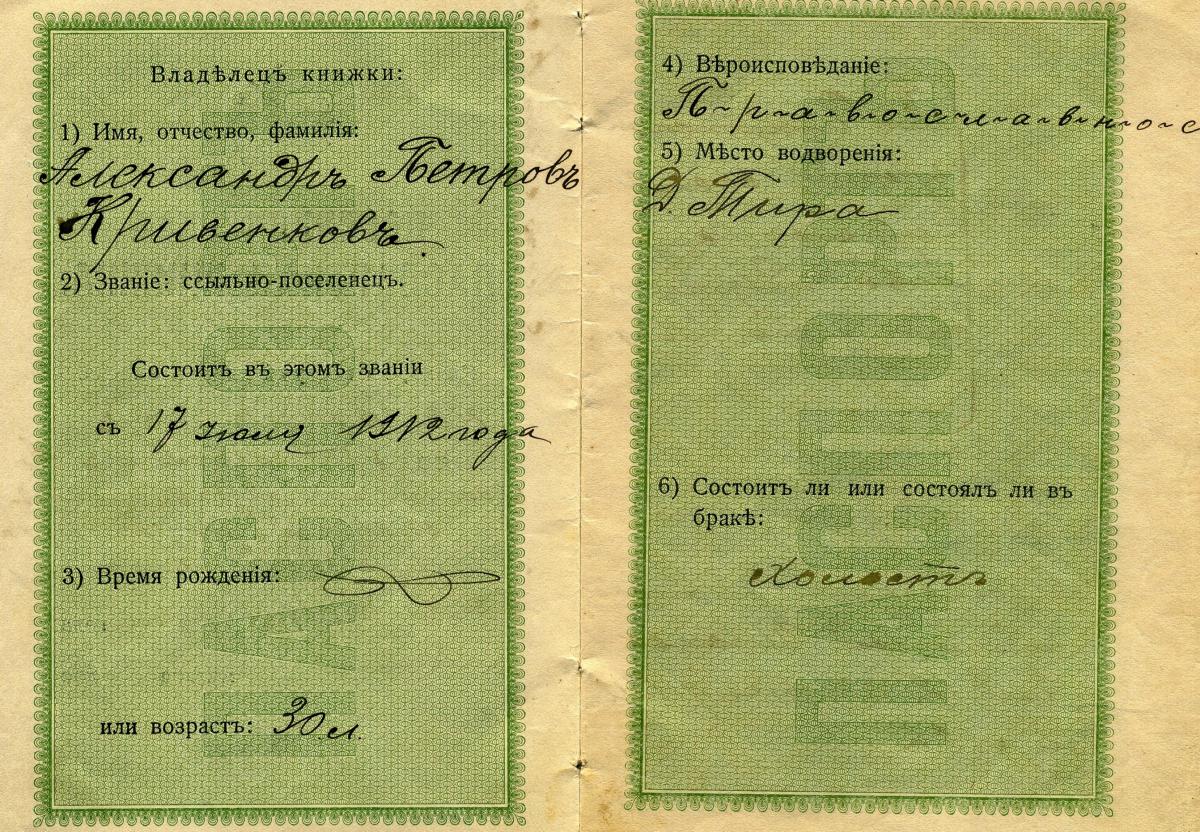 Владѣлецъ книжки:
1) Имя, отчество, фамилія:
Александръ Петровъ
Кривенковъ
2) Званіе: ссыльно-поселенецъ.
Состоитъ въ этомъ званіи
съ 17 июля 1912 года
3) Время рожденія:
или возрастъ: 30 л.
ПАСПОРТЪ
4) Вѣроисповѣданіе:
П-р-а-в-о-с-л-а-в-н-о-с
5) Мѣсто водворенія:
Д. Тира
6) Состоитъ ли или состоялъ ли въ
бракѣ:
Холостъ
ПАСПОРТЪ